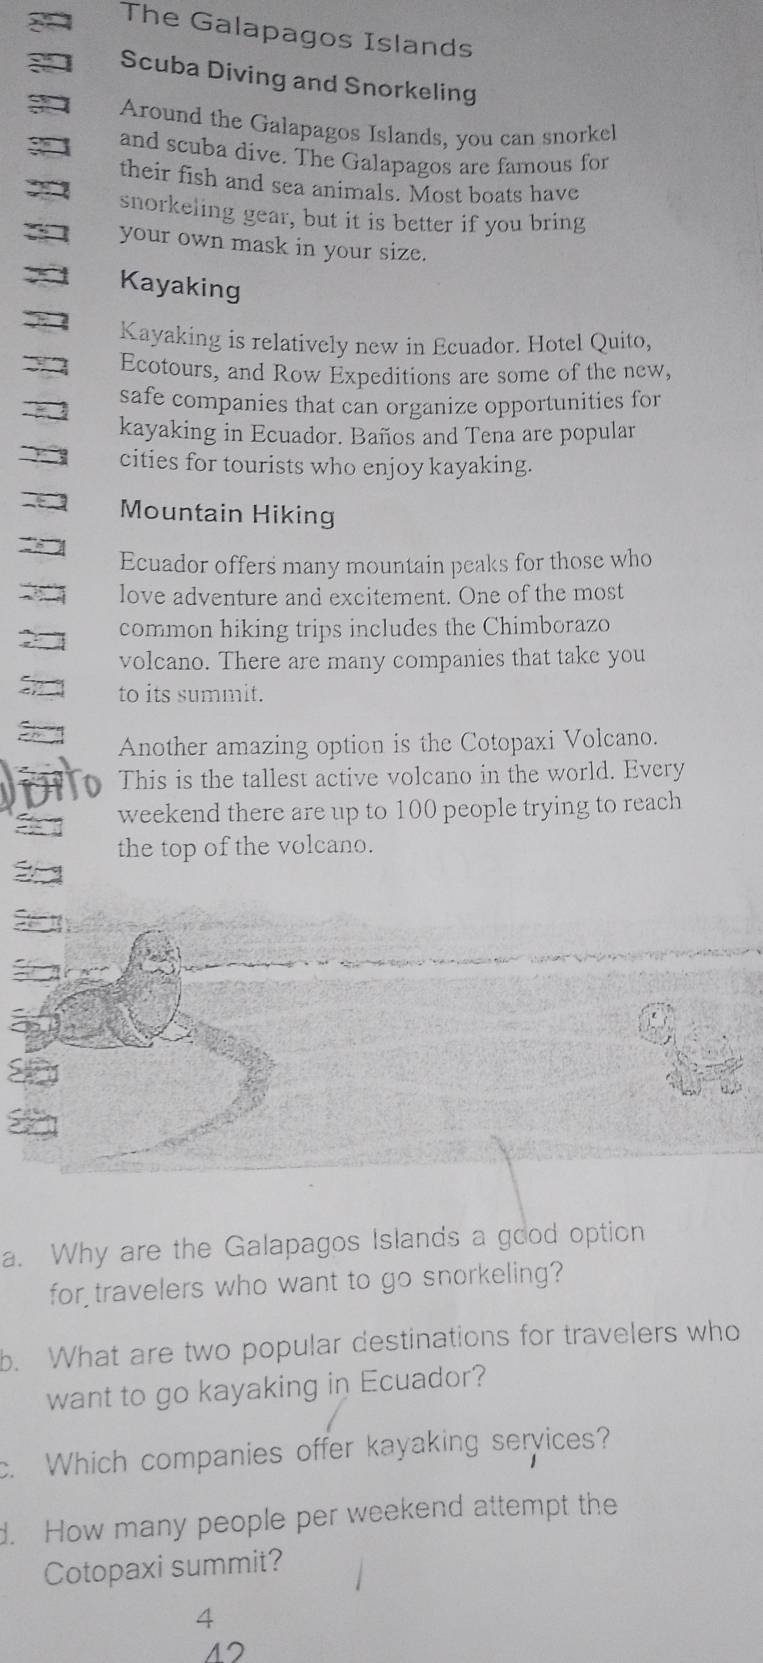 The Galapagos Islands
Scuba Diving and Snorkeling
Around the Galapagos Islands, you can snorkel
and scuba dive. The Galapagos are famous for
their fish and sea animals. Most boats have
snorkeling gear, but it is better if you bring
your own mask in your size.
Kayaking
Kayaking is relatively new in Ecuador. Hotel Quito,
Ecotours, and Row Expeditions are some of the new,
safe companies that can organize opportunities for
kayaking in Ecuador. Baños and Tena are popular
cities for tourists who enjoy kayaking.
Mountain Hiking
Ecuador offers many mountain peaks for those who
love adventure and excitement. One of the most
common hiking trips includes the Chimborazo
volcano. There are many companies that take you
to its summit.
Another amazing option is the Cotopaxi Volcano.
This is the tallest active volcano in the world. Every
weekend there are up to 100 people trying to reach
the top of the volcano.
a. Why are the Galapagos Islands a good option
for travelers who want to go snorkeling?
b. What are two popular destinations for travelers who
want to go kayaking in Ecuador?
c. Which companies offer kayaking services?
d. How many people per weekend attempt the
Cotopaxi summit?
4
42